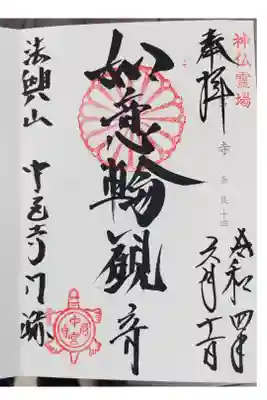 神仏霊場
奉拝
奈良十四
令和四年
六月十一日
如意輪観音
法興山
中宮寺門跡
中宮寺